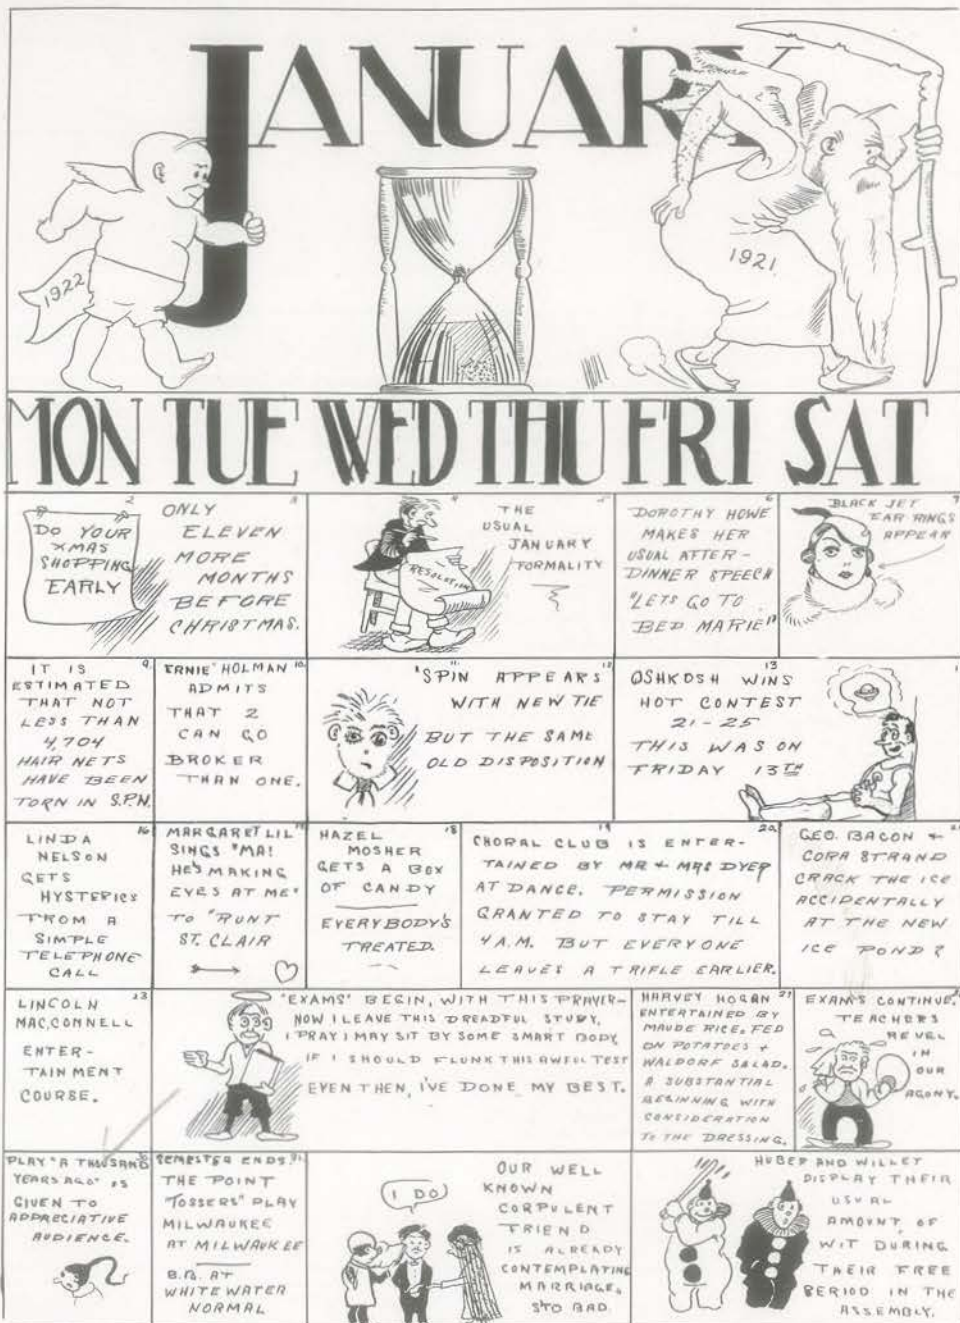 JANUARY
1922
1921
MON TUE WED THU FRI SAT
2
DO YOUR
XMAS
SHOPPING
EARLY
3
ONLY
ELEVEN
MORE
MONTHS
BEFORE
CHRISTMAS.
4
RESOLUTION
5
THE
USUAL
JANUARY
FORMALITY
6
DOROTHY HOWE
MAKES HER
USUAL AFTER-
DINNER SPEECH
"LETS GO TO
BED MARIE"
7
BLACK JET
EAR RINGS
APPEAR
9.
IT IS
ESTIMATED
THAT NOT
LESS THAN
4,704
HAIR NETS
HAVE BEEN
TORN IN S.P.N.
10.
"ERNIE" HOLMAN
ADMITS
THAT 2
CAN GO
BROKER
THAN ONE.
11.
12
"SPIN APPEARS
WITH NEW TIE
BUT THE SAME
OLD DISPOSITION
13
OSHKOSH WINS
HOT CONTEST
21-25
THIS WAS ON
FRIDAY 13TH
16
LINDA
NELSON
GETS
HYSTERICS
FROM A
SIMPLE
TELEPHONE
CALL
MARGARET LIL
SINGS "MA!
HE'S MAKING
EYES AT ME"
TO "RUNT
ST. CLAIR
18
HAZEL
MOSHER
GETS A BOX
OF CANDY
EVERYBODY'S
TREATED.
19
20.
CHORAL CLUB IS ENTER-
TAINED BY MR & MRS DYER
AT DANCE. PERMISSION
GRANTED TO STAY TILL
4 A.M. BUT EVERYONE
LEAVES A TRIFLE EARLIER.
GEO. BACON &
CORA STRAND
CRACK THE ICE
ACCIDENTALLY
AT THE NEW
ICE POND?
23
LINCOLN
MAC,CONNELL
ENTER-
TAINMENT
COURSE.
"EXAMS" BEGIN, WITH THIS PRAYER-
NOW I LEAVE THIS DREADFUL STUDY,
I PRAY I MAY SIT BY SOME SMART BODY,
IF I SHOULD FLUNK THIS AWFUL TEST
EVEN THEN, I'VE DONE MY BEST.
27
HARVEY HOGAN
ENTERTAINED BY
MAUDE RICE. FED
ON POTATOES +
WALDORF SALAD.
A SUBSTANTIAL
BEGINNING WITH
CONSIDERATION
TO THE DRESSING.
EXAMS CONTINUE.
TEACHERS
REVEL
IN
OUR
AGONY.
PLAY "A THOUSAND
YEARS AGO" IS
GIVEN TO
APPRECIATIVE
AUDIENCE.
31.
SEMESTER ENDS.
THE POINT
"TOSSERS" PLAY
MILWAUKEE
AT MILWAUKEE
B.B. AT
WHITEWATER
NORMAL
I DO
OUR WELL
KNOWN
CORPULENT
FRIEND
IS ALREADY
CONTEMPLATING
MARRIAGE.
STO BAD.
HUBER AND WILLEY
DISPLAY THEIR
USUAL
AMOUNT OF
WIT DURING
THEIR FREE
PERIOD IN THE
ASSEMBLY.